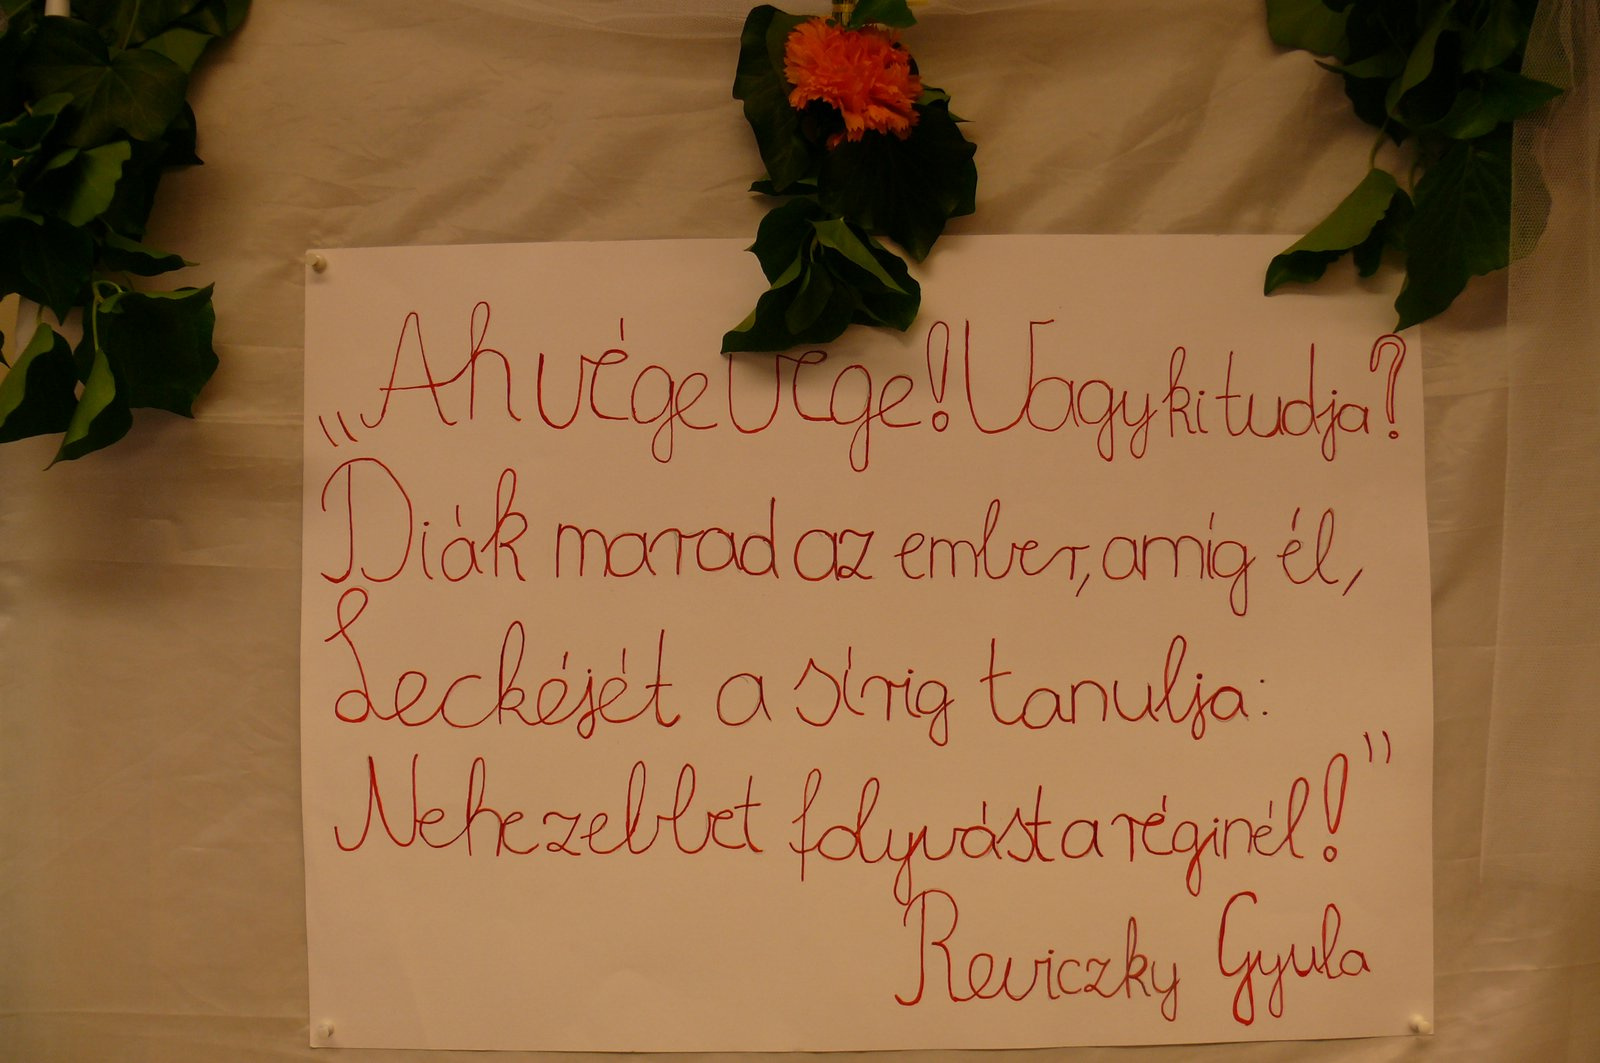 „Ah vége vége! Vagy ki tudja?
Diák marad az ember, amíg él,
Leckéjét a sírig tanulja:
Nehezebbet folyvást a réginél!”
Reviczky Gyula